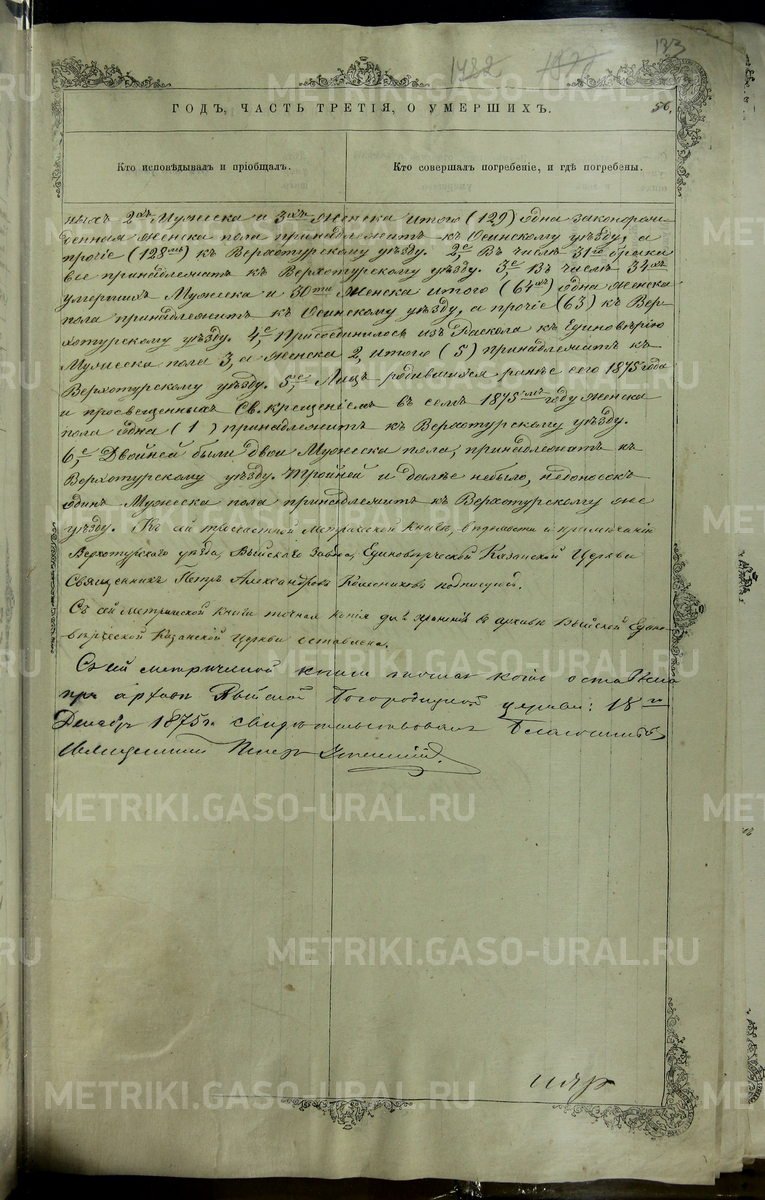 133
1422 1977
ГОДЪ, ЧАСТЬ ТРЕТІЯ, О УМЕРШИХЪ.
56.
Кто исповѣдывалъ и пріобщалъ.
Кто совершалъ погребеніе, и гдѣ погребены.
ныхъ 2хъ Мужеска и 3хъ женска итого (129) одна законорож-
денная женска пола принадлежитъ къ Осинскому уѣзду, а
прочіе (128мь) къ Верхотурскому уѣзду. 2,е Въ числѣ 31го брака
все принадлежатъ къ Верхотурскому уѣзду. 3,е Въ числѣ 34хъ
умершихъ Мужеска и 30ти женска итого (64хъ) одна женска
пола принадлежитъ къ Осинскому уѣзду, а прочіе (63) къ Вер-
хотурскому уѣзду. 4,е Присоединилось изъ Раскола къ Единовѣрію
Мужеска пола 3, а женска 2, итого (5) принадлежатъ къ
Верхотурскому уѣзду. 5,е Лицъ родившихся ранѣе сего 1875 года
и просвещенныхъ Св. крещеніемъ въ семъ 1875мъ году женска
пола одна (1) принадлежитъ къ Верхотурскому уѣзду.
6,е Двойней были двои Мужеска пола, принадлежатъ къ
Верхотурскому уѣзду. Тройней и далѣе небыло, недоносокъ
одинъ Мужеска пола принадлежитъ къ Верхотурскому же
уѣзду. Къ сей метрической книгѣ, и примѣчаніи
Верхотурскаго уѣзда, Выйскаго Завода, Единовѣрческой Казанской Церкви
Священникъ Петръ Александровъ Колесниковъ подписуюсь.
Съ сей метрической книги точная копія для храненія въ архивѣ Выйской Едино-
вѣрческой Казанской Церкви оставлена.
Съ сей метрической книги точная копія оставлена
при архивѣ Выйской Богородицкой церкви: 18го
Декабря 1875 г. свидѣтельствовалъ Благочинный,
Священникъ Петръ
METRIKI.GASO-URAL.RU